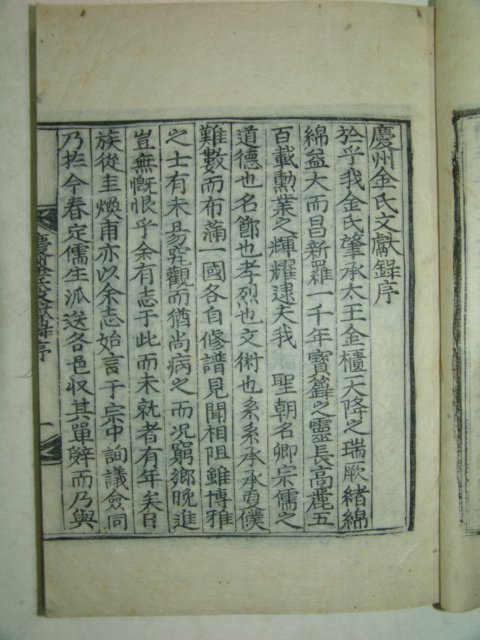 慶州金氏文獻錄序
於乎我金氏肇承太王金櫃天降之瑞厥緒綿
綿益大而昌新羅一千年寶籙之靈長高麗五
百載勳業之輝耀逮夫我 聖朝名卿宗儒之
道德也名節也孝烈也文術也系系承承更僕
難數而布滿一國各自修譜見聞相阻雖博雅
之士有未易究觀而猶尚病之而况窮鄉晚進
豈無慨恨乎余有志于此而未就者有年矣日
族從圭煥甫亦以余志始言于宗中詢議僉同
乃於今春定儒生派送各邑収其單辭而乃與
慶州金氏文獻錄序
一